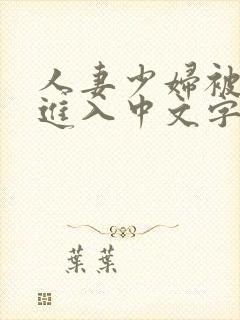 人妻少婦被
進入中文字
葉葉